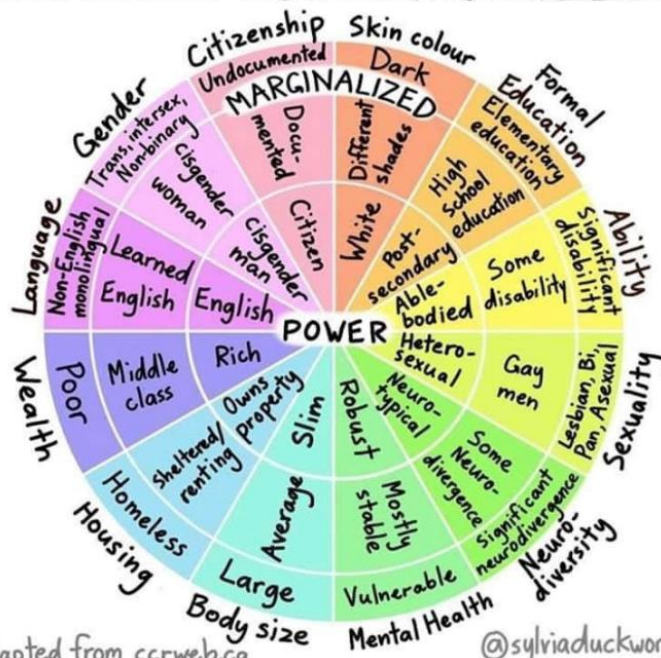 Citizenship
Undocumented
Docu-
mented
Citizen
Skin colour
Dark
Different
shades
White
Formal
Education
Elementary
education
High
School
education
Post-
secondary
Ability
Significant
disability
Some
disability
Able-
bodied
Sexuality
Lesbian, Bi,
Pan, Asexual
Gay
men
Hetero-
sexual
Neuro-
diversity
Significant
neurodivergence
Some
Neuro-
divergence
Neuro-
typical
Mental Health
Vulnerable
Mostly
stable
Robust
Body size
Large
Average
Slim
Housing
Homeless
Sheltered/
renting
Owns
property
Wealth
Poor
Middle
class
Rich
Language
Non-English
monolingual
Learned
English
English
Gender
Trans, intersex,
Nonbinary
cisgender
woman
cisgender
man
MARGINALIZED
POWER
from ccrweb.ca
@sylviaduckwor